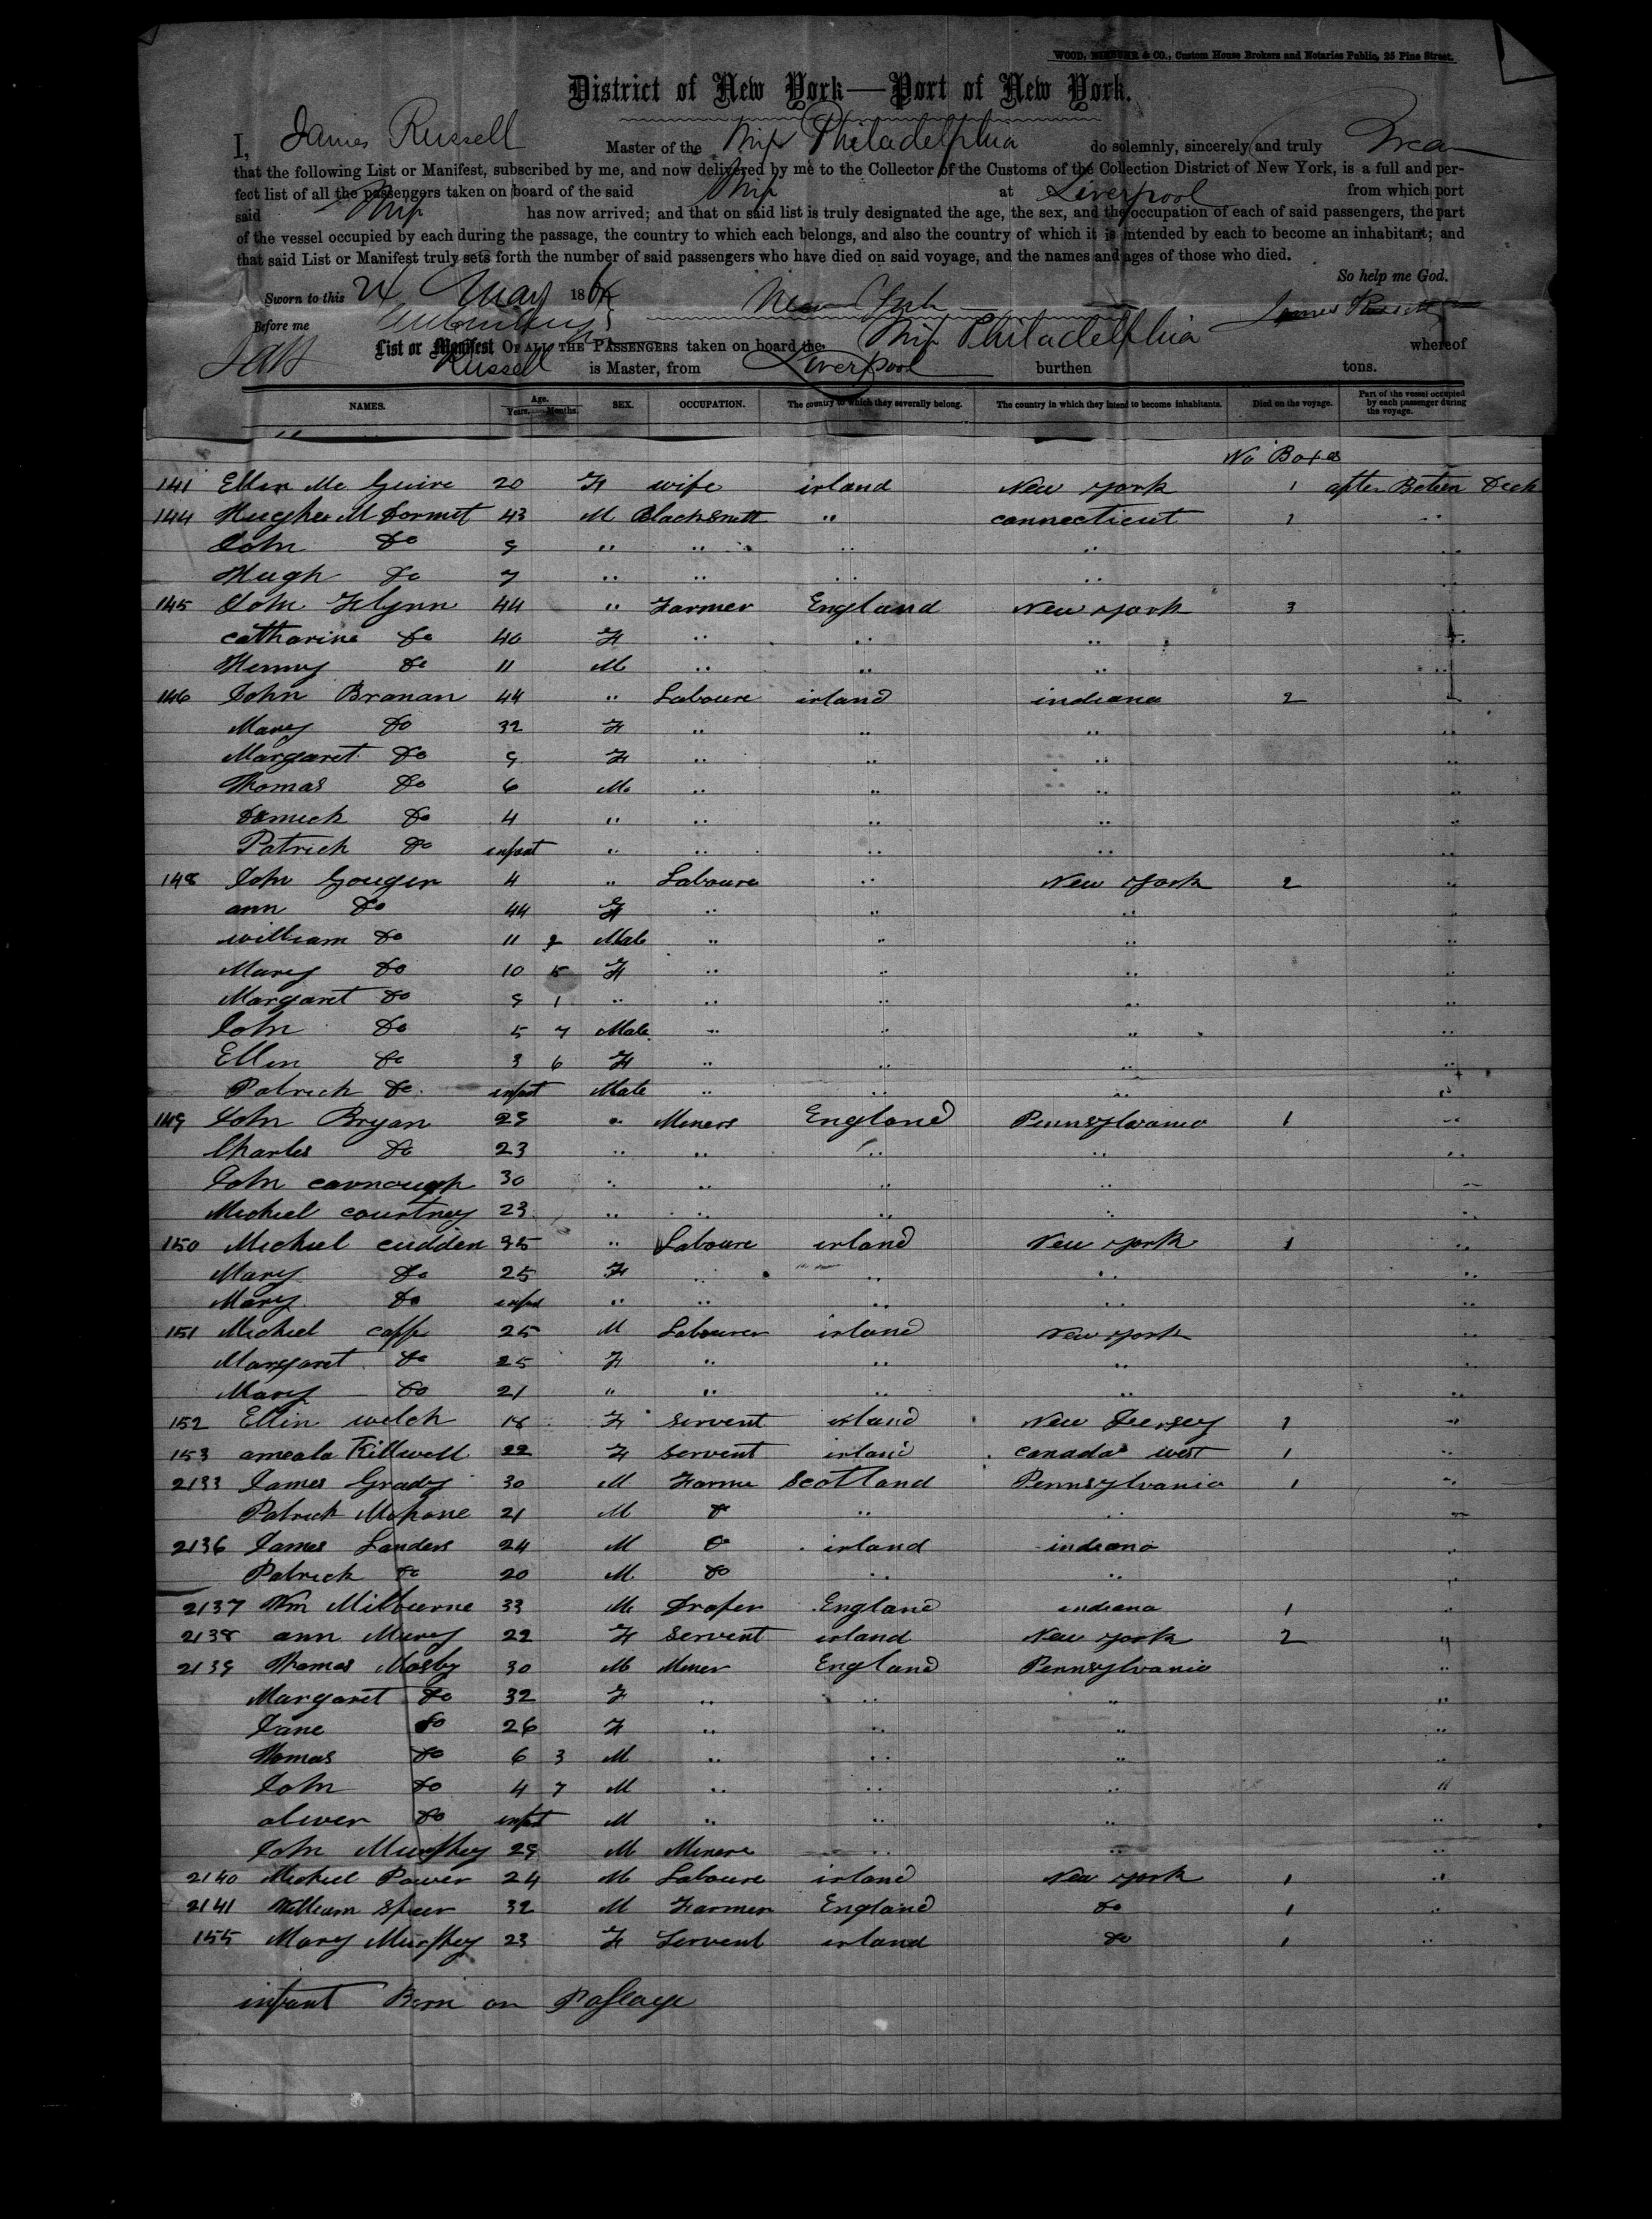 WOOD, & CO., Custom House Brokers and Notaries Public, 25 Pine Street.
District of New York—Port of New York.
I, James Russell Master of the Ship Philadelphia do solemnly, sincerely and truly Swear
that the following List or Manifest, subscribed by me, and now delivered by me to the Collector of the Customs of the Collection District of New York, is a full and per-
fect list of all the passengers taken on board of the said Ship at Liverpool from which port
said Ship has now arrived; and that on said list is truly designated the age, the sex, and the occupation of each of said passengers, the part
of the vessel occupied by each during the passage, the country to which each belongs, and also the country of which it is intended by each to become an inhabitant; and
that said List or Manifest truly sets forth the number of said passengers who have died on said voyage, and the names and ages of those who died.
So help me God.
Sworn to this 24 May 186 New York
Before me James Russell
List or Manifest OF ALL THE PASSENGERS taken on board the Ship Philadelphia whereof
Jas Russell is Master, from Liverpool burthen tons.
NAMES. Age. Years. Months. SEX. OCCUPATION. The country to which they severally belong. The country in which they intend to become inhabitants. Died on the voyage. Part of the vessel occupied by each passenger during the voyage.
No Boxes
141 Ellen Mc Guire 20 F wife irland New york 1 after Beteen Deck
144 Hughes M Dormet 43 M Blacksmith " connecticut 1 "
John Do 9 " " " " "
Hugh Do 7 " " " " "
145 John Flynn 44 " Farmer England New york 3 "
catharine Do 40 F " " " "
Henry Do 11 M " " " "
146 John Branan 44 " Laboure irland indiana 2 "
Mary Do 32 F " " " "
Margaret Do 9 F " " " "
Thomas Do 6 M " " " "
Domick Do 4 " " " " "
Patrick Do infant " " " " "
148 John Gouger 4 " Laboure " New york 2 "
ann Do 44 F " " " "
william Do 11 2 Male " " " "
Mary Do 10 5 F " " " "
Margaret Do 9 1 " " " " "
John Do 5 7 Male " " " "
Ellen Do 3 6 F " " " "
Patrick Do infant Male " " " "
149 John Bryan 29 " Miners England Pennsylvania 1 "
Charles Do 23 " " " " "
John cavnough 30 " " " " "
Micheel courtney 23 " " " " "
150 Micheel cudden 35 " Laboure irland New york 1 "
Mary Do 25 F " " " "
Mary Do infant " " " " "
151 Micheel caff 25 M Labourer irland New york "
Margaret Do 25 F " " " "
Mary Do 21 " " " " "
152 Ellin welch 18 F servent irland New Jersey 1 "
153 ameala Killwell 22 F servent irland canada west 1 "
2133 James Grady 30 M Farme Scotland Pennsylvania 1 "
Patrick Mahone 21 M Do " " "
2136 James Landers 24 M Do irland indiana "
Patrick Do 20 M Do " " "
2137 Wm Milburne 33 M Draper England indiana 1 "
2138 ann Murey 22 F servent irland New york 2 "
2139 Thomas Mosby 30 M Miner England Pennsylvania "
Margaret Do 32 F " " " "
Jane Do 26 F " " " "
Thomas Do 6 3 M " " " "
John Do 4 7 M " " " "
oliver Do infant M " " " "
John Murphey 29 M Minere " " "
2140 Micheel Power 24 M Laboure irland New york 1 "
2141 William Speer 32 M Farmer England Do 1 "
155 Mary Murphey 23 F Servent irland Do 1 "
infant Born on Passage